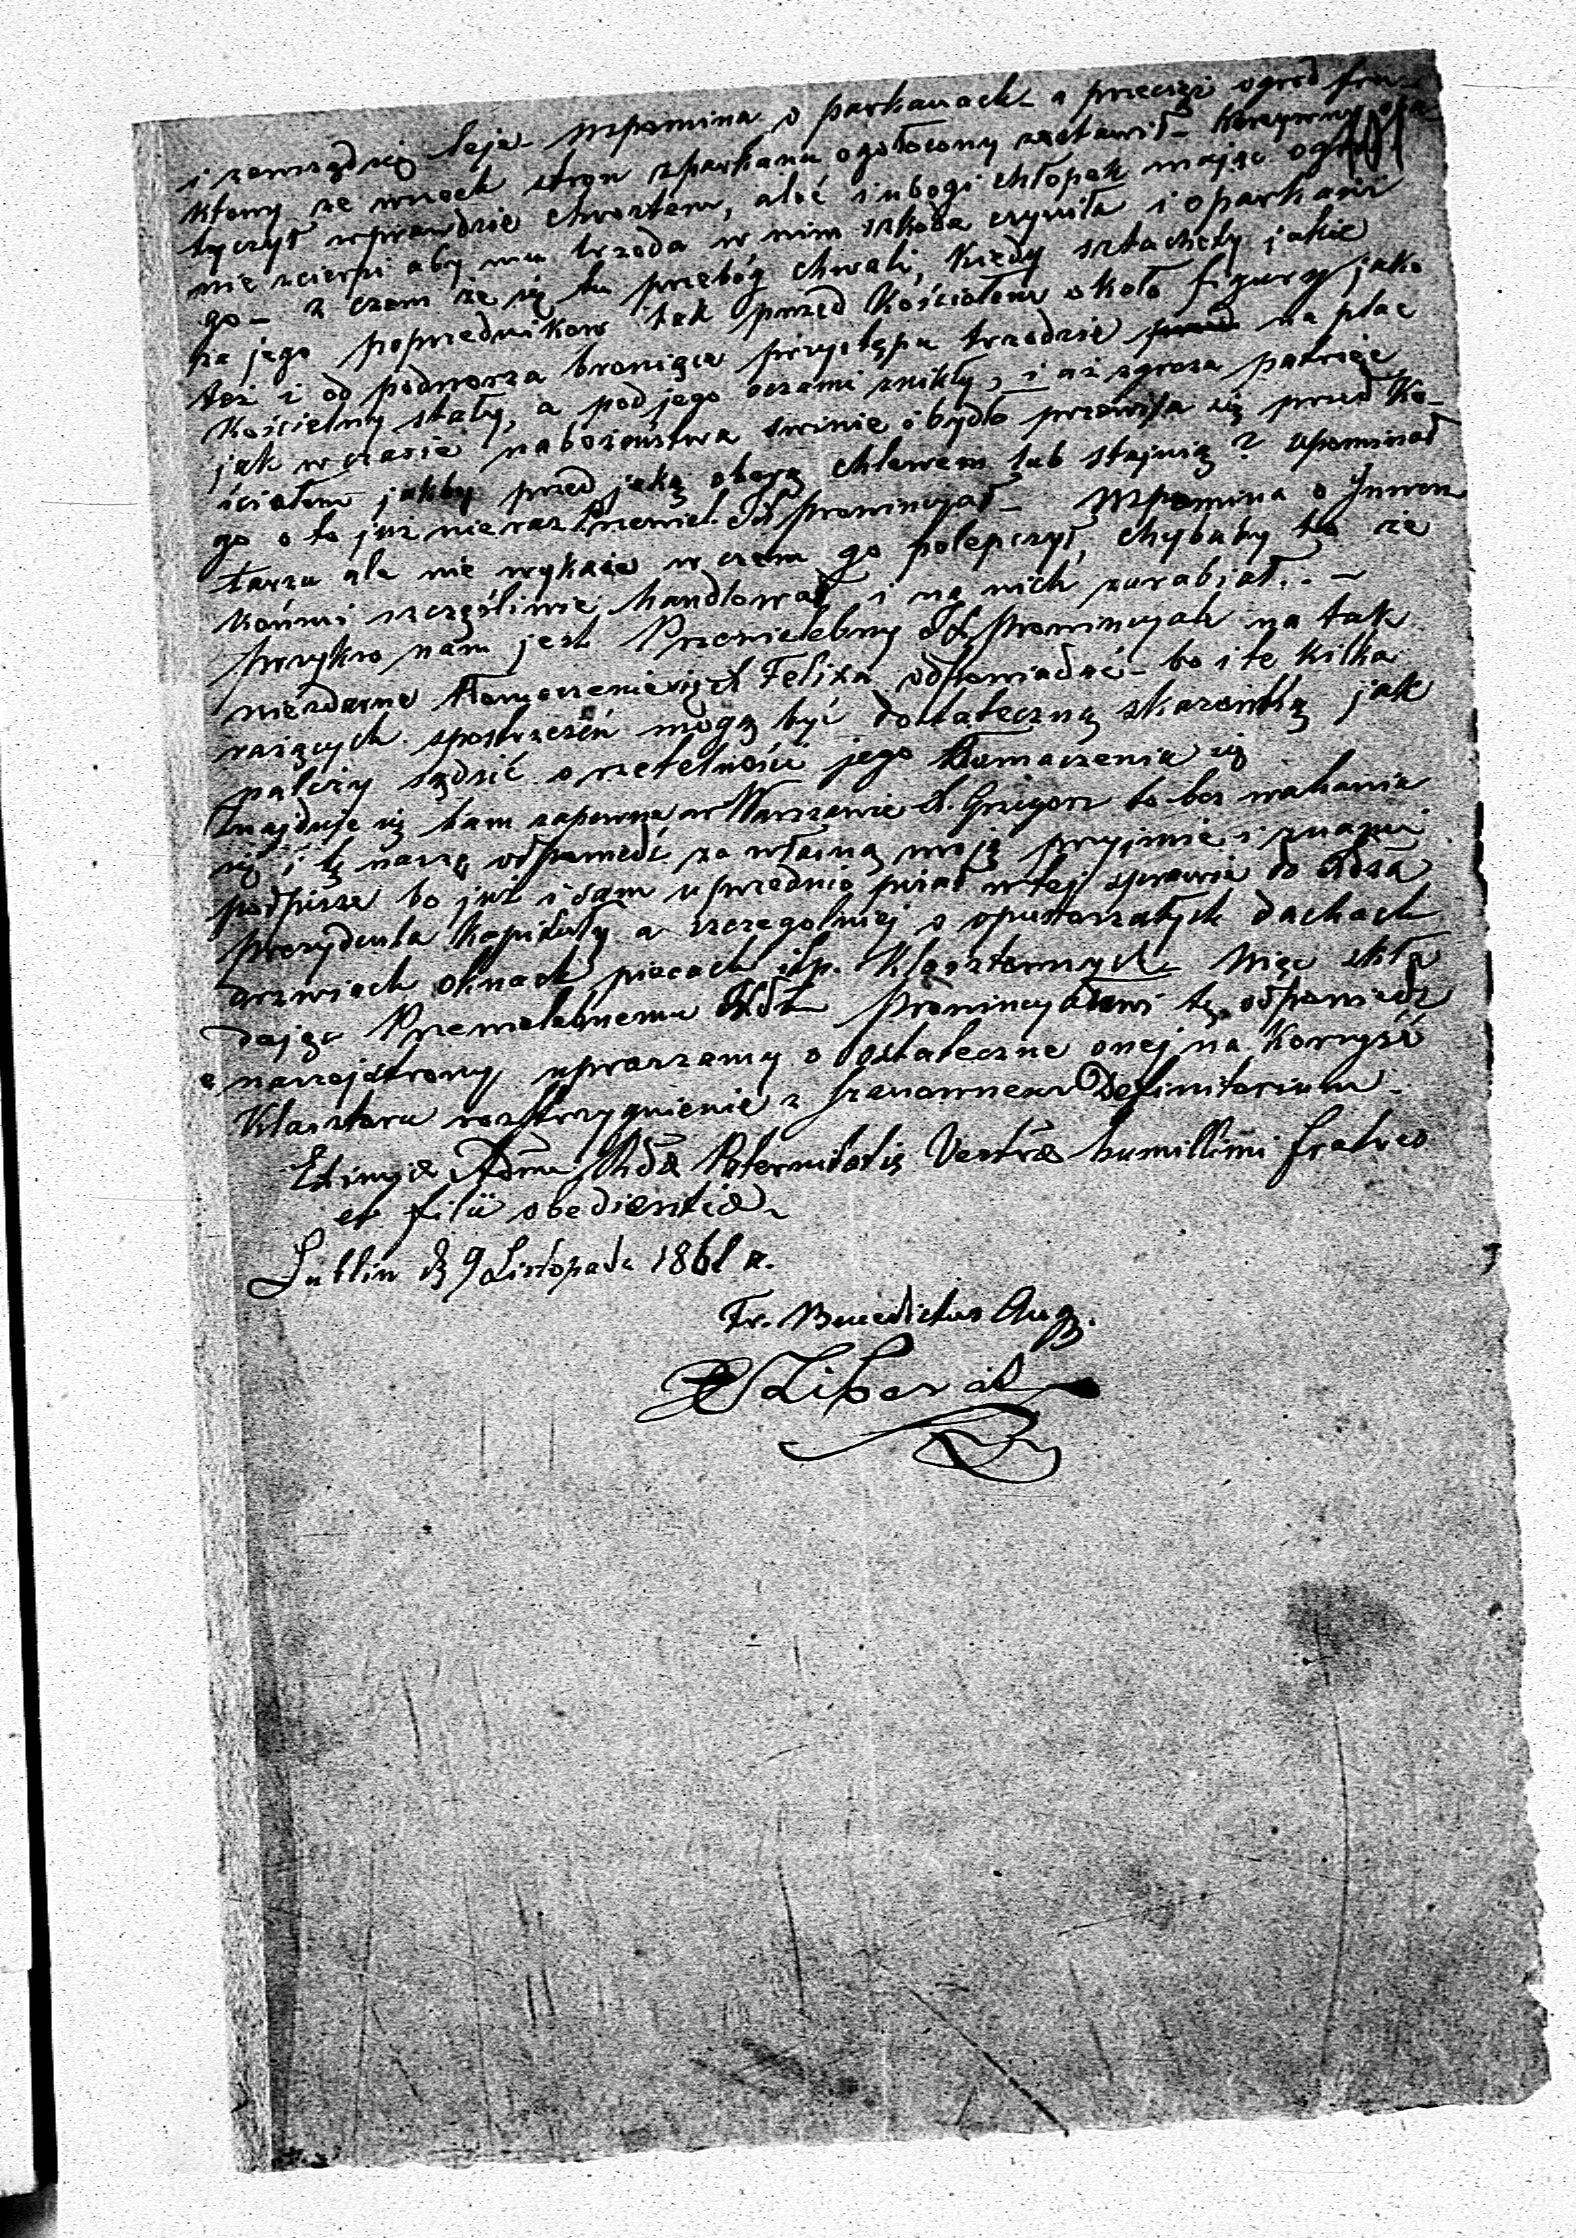 i zewsząd się leje. Wspomina o parkanach – a przecież ogród fru–
ktowy ze wszech stron z parkanu ogołocony zostawił – Warzywny opa–
tyczył wprawdzie chrostem, aleć i ubogi chłopek mając ogród
nie scierpi aby mu trzoda w nim szkoda czyniła i oparkani
go – z czem że się tu przebóg chwali, kiedy sztachety jakie
za jego poprzedników tak przed Kościołem około figury jako
też i od podworza broniące przystępu trzodzie na plac
Kościelny stały, a pod jego oczami znikły, i aż zgroza patrzeć
jak w czasie nabożeństwa swinie i bydło przewija się przed Ko–
ściołem jakby przed jaką oborą chlewem lub stajnią? Upominał
go o to już nieraz Przewiel. Prowincyał – Wspomina o Inwen
tarzu ale nie wykaże w czem go polepszył, chybaby to że
końmi szczęśliwie handlował i na nich zarabiał. . –
Przykro nam jest Przewielebny Prowincyale na tak
niezdarne tłomaczenie się X Felixa odpowiadać – bo i te kilka
rażących spostrzeżeń mogą być dostateczną skazówką jak
należy sądzić o rzetelności jego tłomaczenia się
Znajduje się tam zapewne w Warszawie X. Grzegorz to bez wahania
się i tę naszą odpowiedź za własną swoją przyjmie i
podpisze bo już i sam uprzednio pisał w tej sprawie do
Prezydenta Kapituły a szczególniej o opustoszałych dachach
drzwiach oknach piecach itp. Klasztornych – Więc skła
dając Przewielebnemu Prowincyałowi tę odpowiedź
z naszej strony upraszamy o ostateczne onej na Korzyść
Klasztoru rozstrzygnienie z Szanownem Definitorium –
Eximiæ Admr Rdæ Paternitatis Vestræ humillimi fratres
et filii obedientiæ
Lublin d 9 Listopada 1861 r.
Fr. Benedictus Aug.